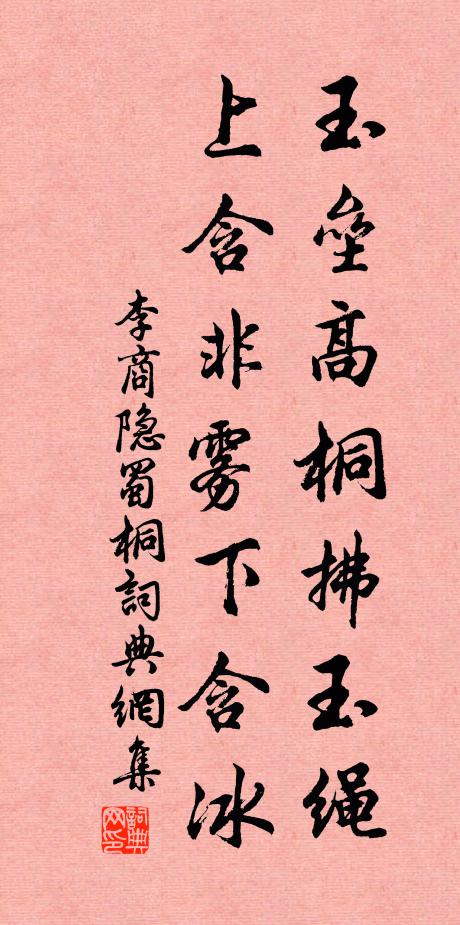 玉垒高桐拂玉绳
上含非雾下含冰
李商隐蜀桐詞典網集
詞典网印